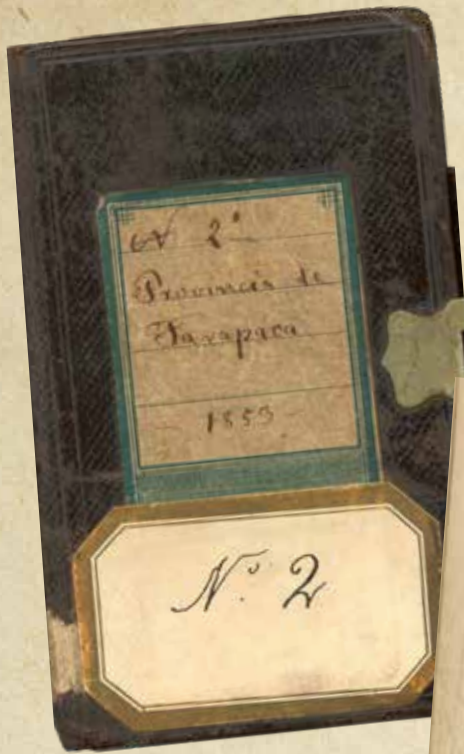 Nº 2º
Provincia de
Tarapaca
- 1853 -
Nº. 2